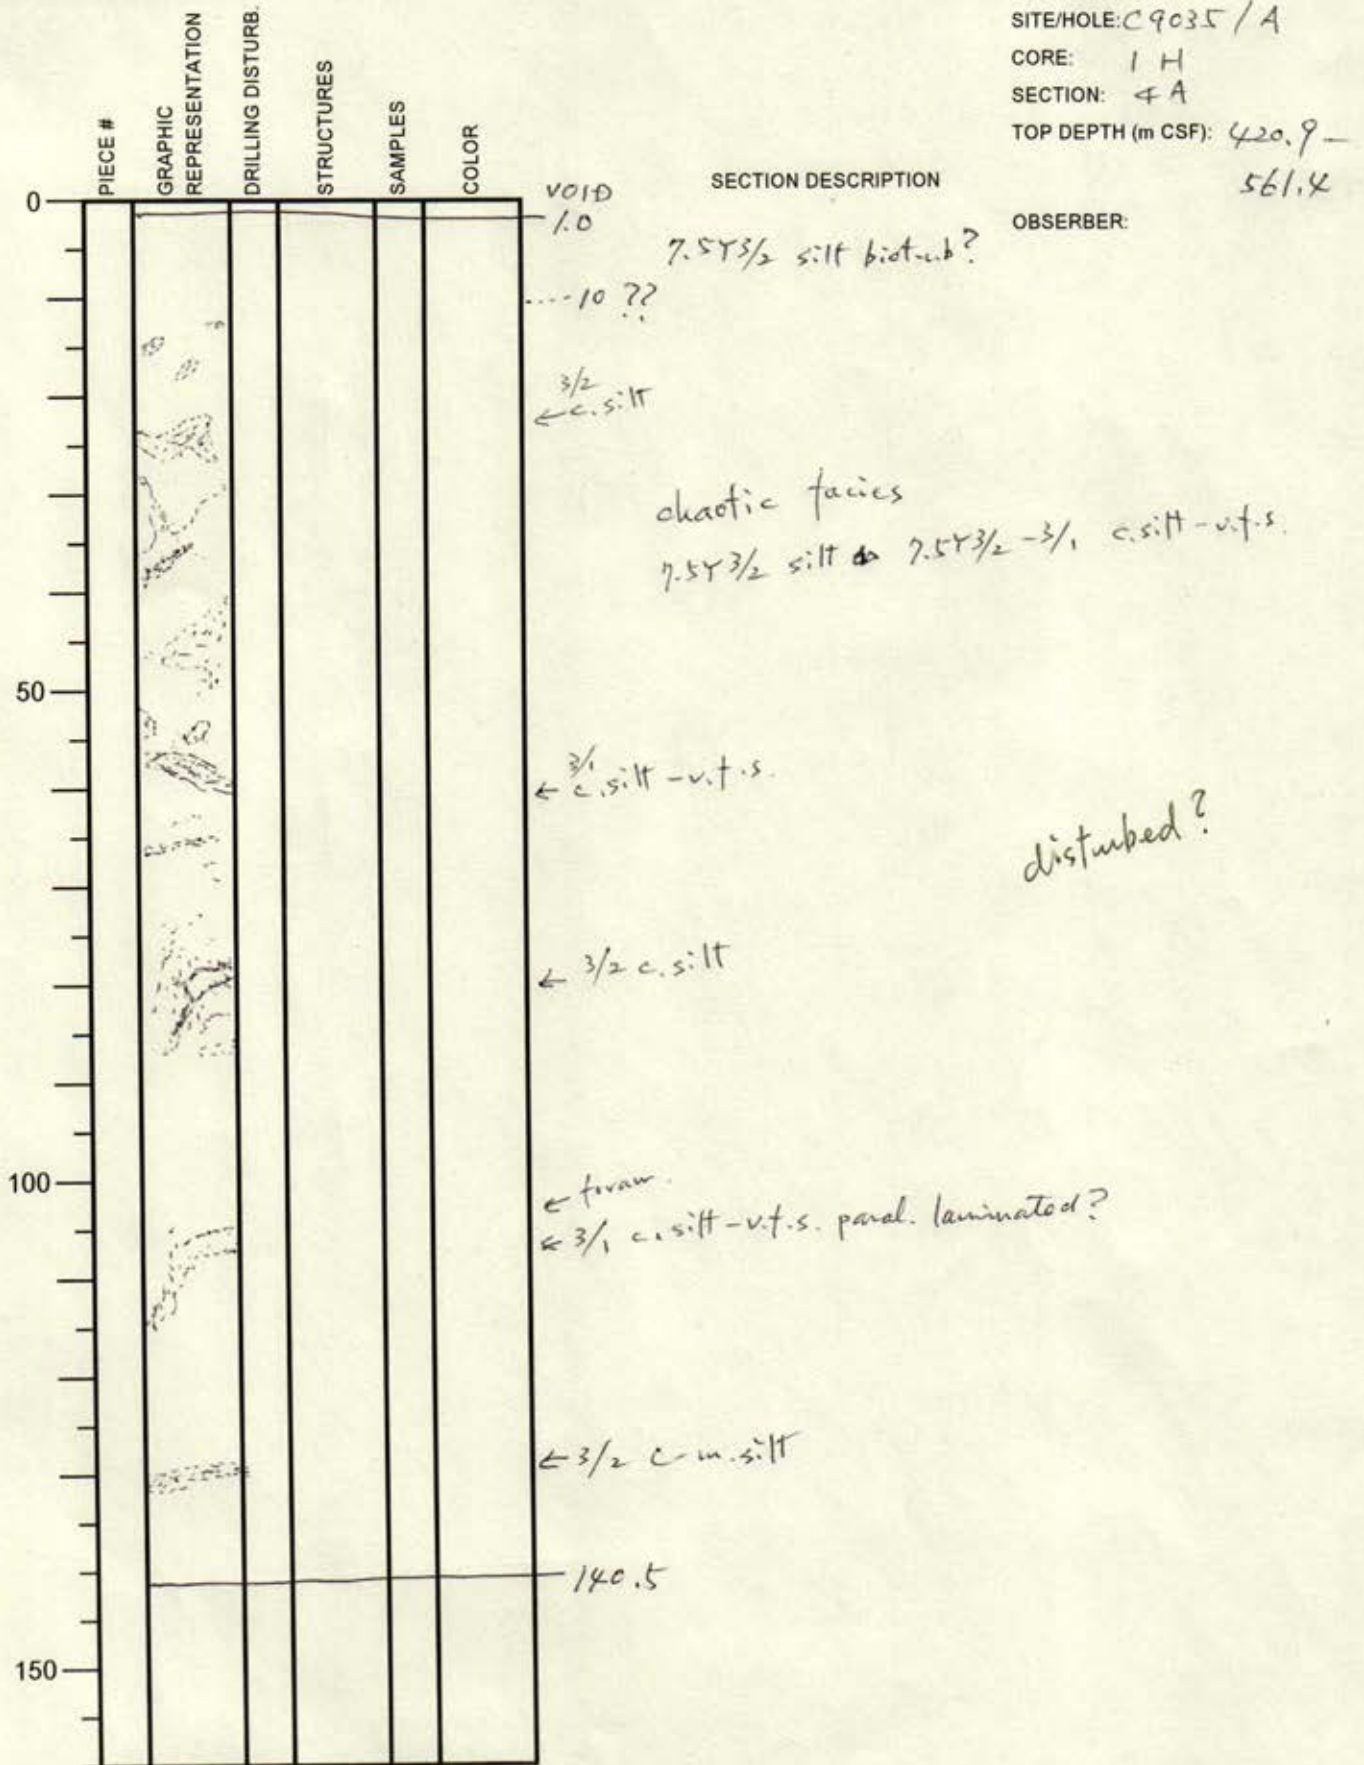 SITE/HOLE: C9035 / A
CORE: 1 H
SECTION: 4 A
TOP DEPTH (m CSF): 420.9 –
561.4
OBSERBER:
PIECE #
GRAPHIC REPRESENTATION
DRILLING DISTURB.
STRUCTURES
SAMPLES
COLOR
SECTION DESCRIPTION
0
VOID
1.0
7.5Y3/2 silt bioturb?
10 ??
3/2
← c.silt
chaotic facies
7.5Y3/2 silt 7.5Y3/2 - 3/1 c.silt - v.f.s.
50
3/1
← c.silt - v.f.s.
disturbed?
← 3/2 c.silt
100
← foram.
← 3/1 c.silt - v.f.s. paral. laminated?
← 3/2 c-m.silt
140.5
150